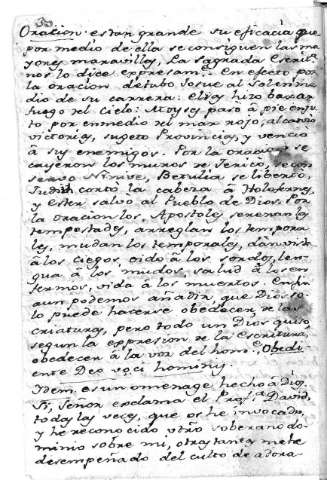 Oracion estan grande su eficacia que
por medio de ella se consiguen las ma
yores maravillas, La Sagrada Escrit.
nos lo dice expresam.te En efecto por
la oracion detubo Josue al Sol en m
dio de su carrera: Elias hizo baxar
fuego del Cielo: Moyses paso à pie enju
to por enmedio del mar rojo, alcanzo
victorias, sugeto Provincias, y vencio
à sus enemigos. Por la oracion se
cayeron los muros de Jerico, se con
servo Ninive, Betulia se liberto,
Judith cortò la cabeza à Holofernes,
y Ester salvo al Pueblo de Dios. Por
la oracion los Apostoles serenan las
tempestades, arreglan los tempora
les, mudan los temporales, dan vista
à los ciegos, oido à los sordos, len
gua à los mudos, salud à los en
fermos, vida à los muertos. En fin
aun podemos añadir que Dios so
lo puede hacerse obedecer de las
criaturas, pero todo un Dios quiso
segun la expresion de la Escritura,
obedecer à la voz del hom.e, Obedi
ente Deo voci hominis.
Idem es un omenage hecho à Dios
Si, Señor exclama el Prof.ta David,
todas las veces, que os he invocado,
y he reconocido vtro soberano do
minio sobre mi, otras tantas me he
desempeñado del culto de adora